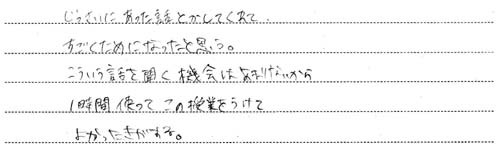 じっさいにあった話とかしてくれて、
すごくためになったと思う。
こういう話を聞く機会はあまりないから
1時間使ってこの授業をうけて
よかったきがする。